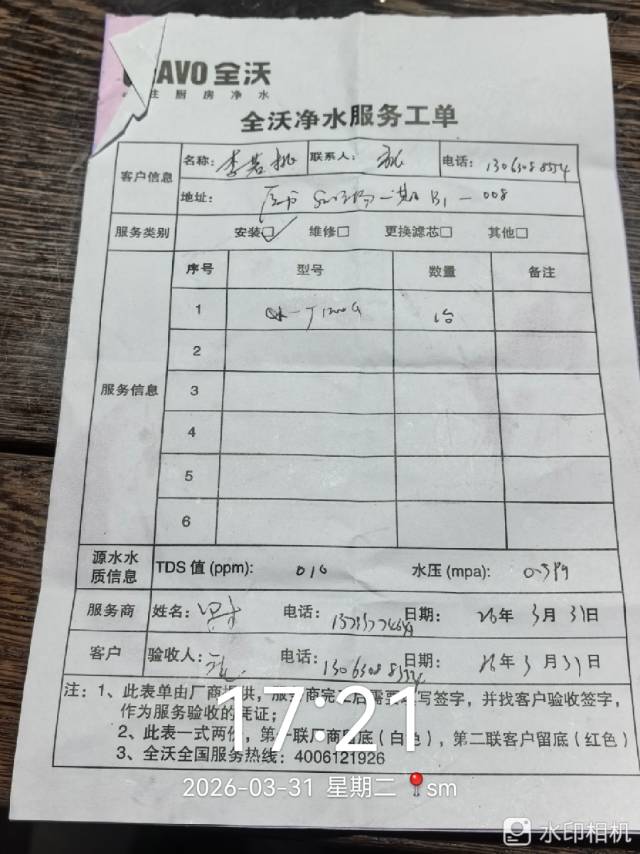 AVO 全沃
住 厨 房 净 水
全沃净水服务工单
客户信息 名称: 联系人: 电话:
地址: 一期 B1-008
服务类别 安装☑ 维修□ 更换滤芯□ 其他□
服务信息 序号 型号 数量 备注
1 1台
2
3
4
5
6
源水水质信息 TDS 值 (ppm): 010 水压 (mpa):
服务商 姓名: 电话: 日期: 26年 3月 31日
客户 验收人: 电话: 日期: 26年 3月 31日
注: 1、此表单由厂商提供, 服务商完工后需要填写签字, 并找客户验收签字,
作为服务验收的凭证;
2、此表一式两份, 第一联厂商留底 (白色), 第二联客户留底 (红色)
3、全沃全国服务热线: 4006121926
17:21
2026-03-31 星期二 sm
水印相机